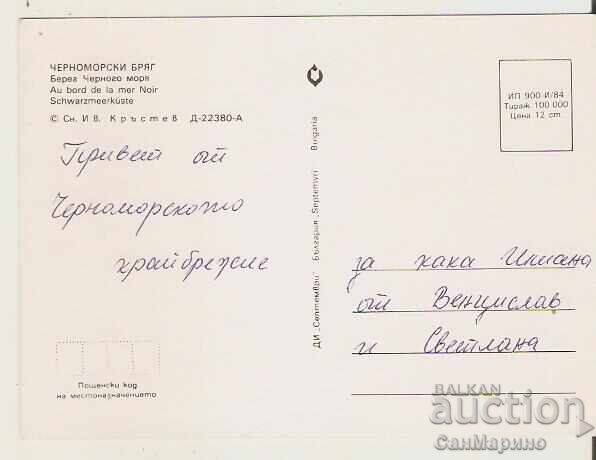 ЧЕРНОМОРСКИ БРЯГ
Берег Черного моря
Au bord de la mer Noir
Schwarzmeerküste
© Сн. Ив. Кръстев Д-22380-А
Привет от
Черноморското
крайбрежие
ДИ „Септември" България „Septemvri" Bulgaria
ИП 900-И/84
Тираж 100 000
Цена 12 ст.
за кака Илиана
от Венцислав
и Светлана
Пощенски код
на местоназначението
BALKAN
auction
СанМарино